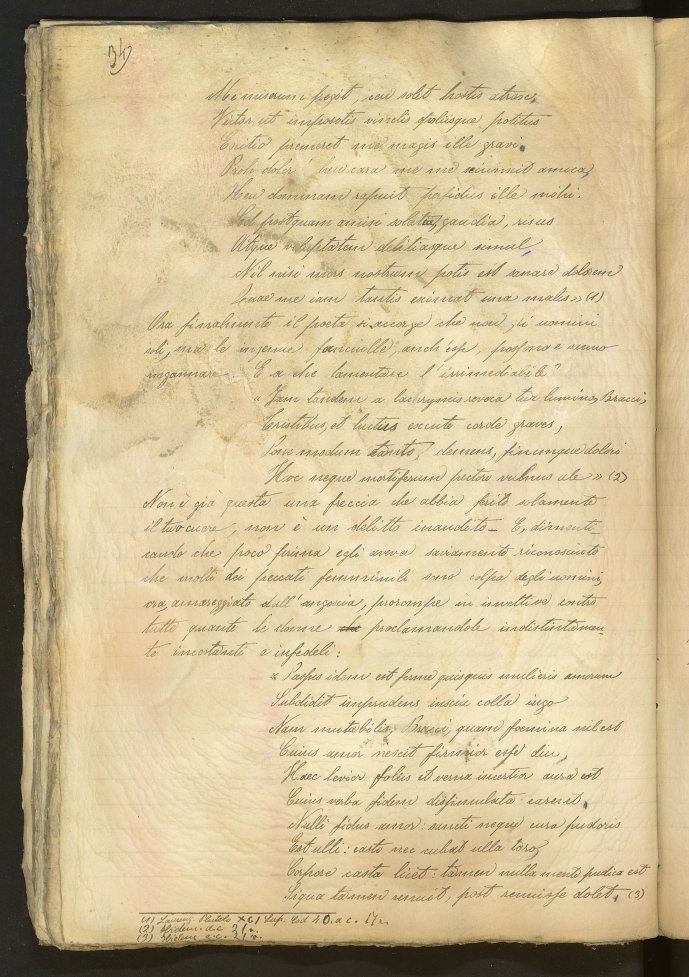 34
Me miserum fregit, ceu solet hostis atrox,
Victor ut impositis vinclis spoliisque potitus
Exitio premeret me magis ille gravi.
Proh dolor! heu cara me me amica,
Heu dominam rapuit perfidus ille mihi.
Sed postquam amisi solatia, gaudia, risus
Atque voluptatem delitiasque simul,
Nil nisi mors nostrum potis est sanare dolorem
Quae me iam tantis eximat una malis» (1)
Ora finalmente il poeta s'accorge che non gli uomini
soli, ma le ingenue fanciulle, anch'esse, possono e sanno
ingannare. E a che lamentare l'irrimediabile?
« Jam tandem a lachrymis revoca tua lumina, Bracci,
Tristibus, et luctus excute corde graves,
Pone modum tanto, demens, finemque dolori
Hoc neque mortiferum pectore vulnus ale » (2)
Non è già questa una freccia che abbia ferito solamente
il tuo cuore, non è un delitto inaudito_ E, dimenti
cando che poco prima egli aveva saviamente riconosciuto
che molti dei peccati femminili sono colpa degli uomini,
ora, amareggiato dall'angoscia, prorompe in invettive contro
tutte quante le donne proclamandole indistintamen-
te incostanti e infedeli:
« Passus idem est ferme quisquis mulieris amorum
Subdidit imprudens inscia colla iugo
Nam mutabilis, Bracci, quam foemina nil est
Cuius amor nescit firmior esse diu,
Haec levior foliis et verna incertior aura est
Cuius verba fidem dissimulata carent.
Nulli fidus amor: sancti neque cura pudoris
Est ulli: casto nec cubat ulla toro,
Corpore casta licet: tamen nulla mente pudica est
Siqua tamen renuit, post renuisse dolet. (3)
(1) Laurenz. Pluteo XCI Sup. Cod 40. a c. 17
(2) Ibidem. a c. 21 r.
(3) Ibidem a c. 21 v.